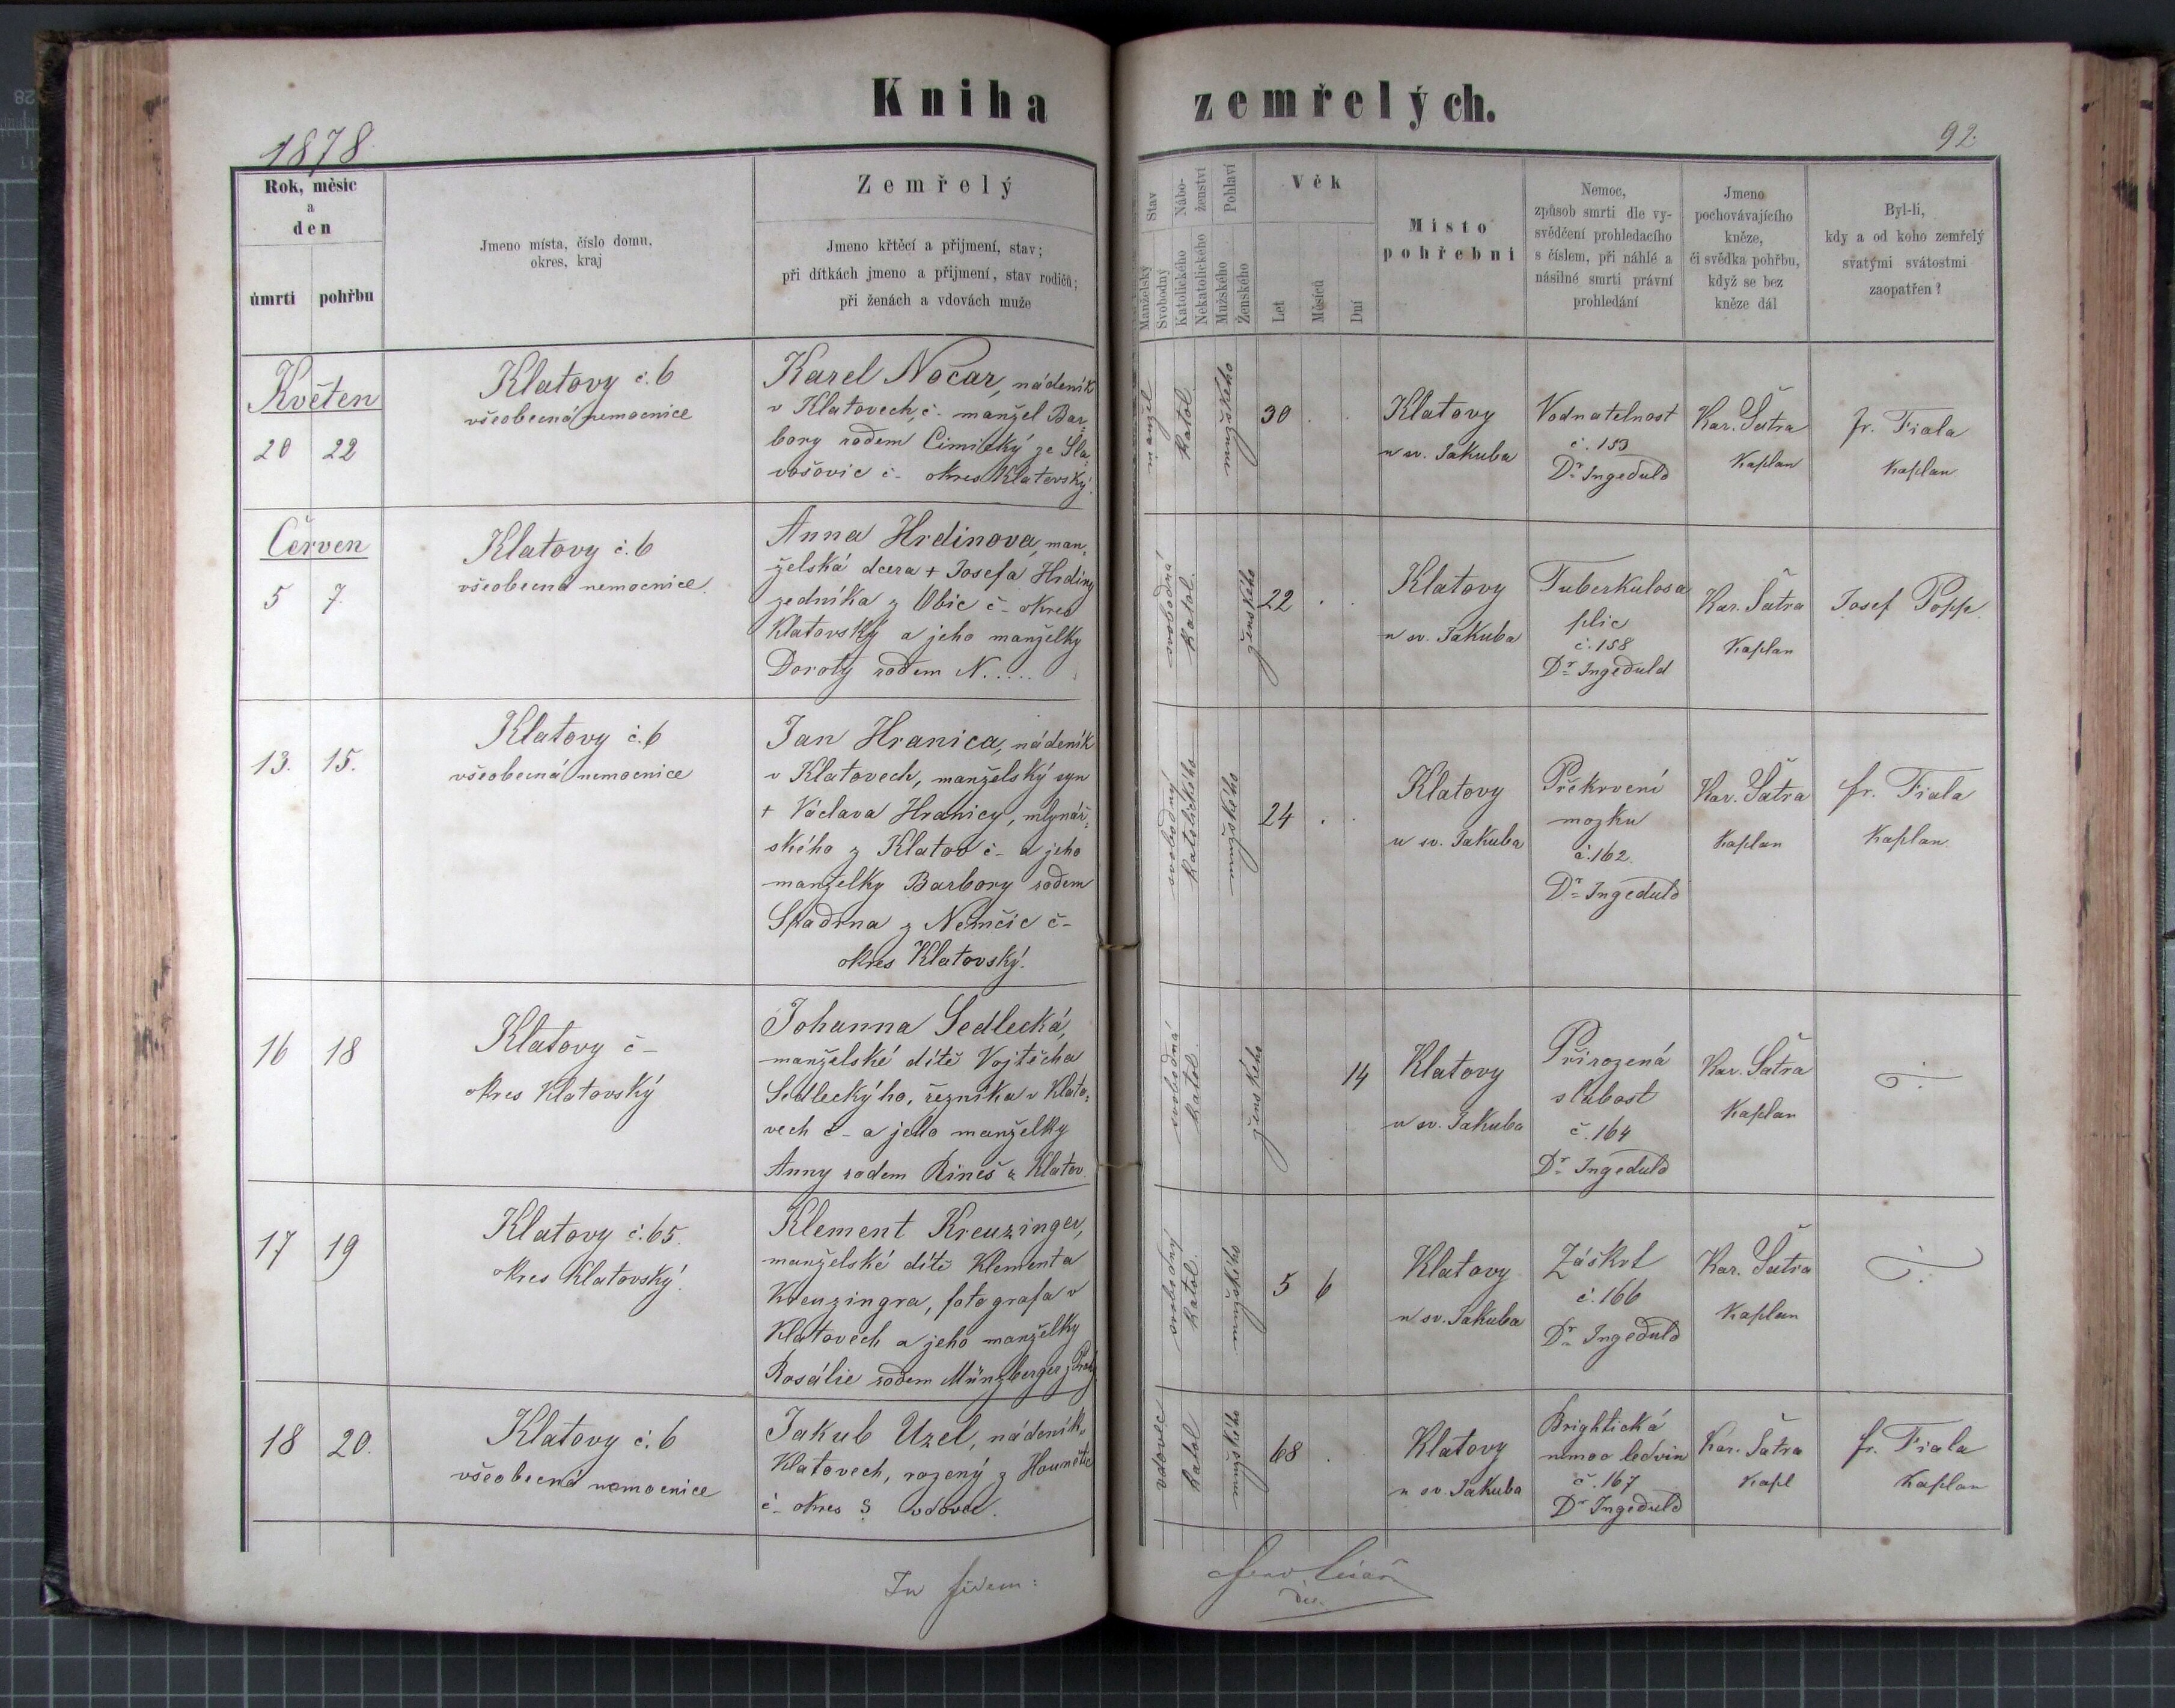 Kniha zemřelých.
1878
92.
Rok, měsíc
a
den
úmrtí
pohřbu
Jmeno místa, číslo domu,
okres, kraj
Zemřelý
Jmeno křtěcí a přijmení, stav;
při dítkách jmeno a přijmení, stav rodičů;
při ženách a vdovách muže
Stav
Manželský
Svobodný
Nábo-
ženství
Katolického
Nekatolického
Pohlaví
Mužského
Ženského
Věk
Let
Měsíců
Dní
Místo
pohřební
Nemoc,
způsob smrti dle vy-
svědčení prohledacího
s číslem, při náhlé a
násilné smrti právní
prohledání
Jmeno
pochovávajícího
kněze,
či svědka pohřbu,
když se bez
kněze dál
Byl-li,
kdy a od koho zemřelý
svatými svátostmi
zaopatřen?
Květen
20 22
Klatovy č. 6
všeobecná nemocnice
Karel Nocar, nádeník
v Klatovech, č - manžel Bar-
bory rodem Cimický ze Sla-
vošovic č - okres Klatovský.
manžel
katol.
mužského
30
Klatovy
u sv. Jakuba
Vodnatelnost
č. 153
Dr Ingeduld
Kar. Šatra
Kaplan
fr. Fiala
Kaplan
Červen
5 7
Klatovy č. 6
všeobecná nemocnice.
Anna Hrdinova, man-
želská dcera + Josefa Hrdiny
zedníka z Obic č - okres
Klatovský a jeho manželky
Doroty rodem N.....
svobodná
katol.
ženského
22
Klatovy
u sv. Jakuba
Tuberkulosa
plic
č. 158
Dr Ingeduld
Kar. Šatra
Kaplan
Josef Popp.
13. 15.
Klatovy č. 6
všeobecná nemocnice
Jan Hranica, nádeník
v Klatovech, manželský syn
+ Václava Hranicy, mlynář-
ského z Klatov č - a jeho
manželky Barbory rodem
Spadrna z Němčic č -
okres Klatovský.
svobodný
katolického
mužského
24
Klatovy
u sv. Jakuba
Překrvení
mozku
č. 162.
Dr Ingeduld
Kar. Šatra
Kaplan
fr. Fiala
Kaplan
16 18
Klatovy č -
okres Klatovský
Johanna Sedlecká,
manželské dítě Vojtěcha
Sedleckýho, řezníka v Klato-
vech č - a jeho manželky
Anny rodem Rineš z Klatov.
svobodná
katol.
ženského
14
Klatovy
u sv. Jakuba
Přirozená
slabost
č. 164
Dr Ingeduld
Kar. Šatra
Kaplan
17 19
Klatovy č. 65.
okres Klatovský.
Klement Kreuzinger,
manželské dítě Klementa
Kreuzingra, fotografa v
Klatovech a jeho manželky
Rosálie rodem Münzberger z Prahy
svobodný
katol.
mužského
5 6
Klatovy
u sv. Jakuba
Záškrt
č. 166
Dr Ingeduld
Kar. Šatra
Kaplan
18 20.
Klatovy č. 6
všeobecná nemocnice
Jakub Uzel, nádeník v
Klatovech, rozený z Hounětic
č - okres S vdovec.
vdovec
katol
mužského
68
Klatovy
u sv. Jakuba
Brightická
nemoc ledvin
č. 167
Dr Ingeduld
Kar. Šatra
Kapl
fr. Fiala
Kaplan
In fidem: